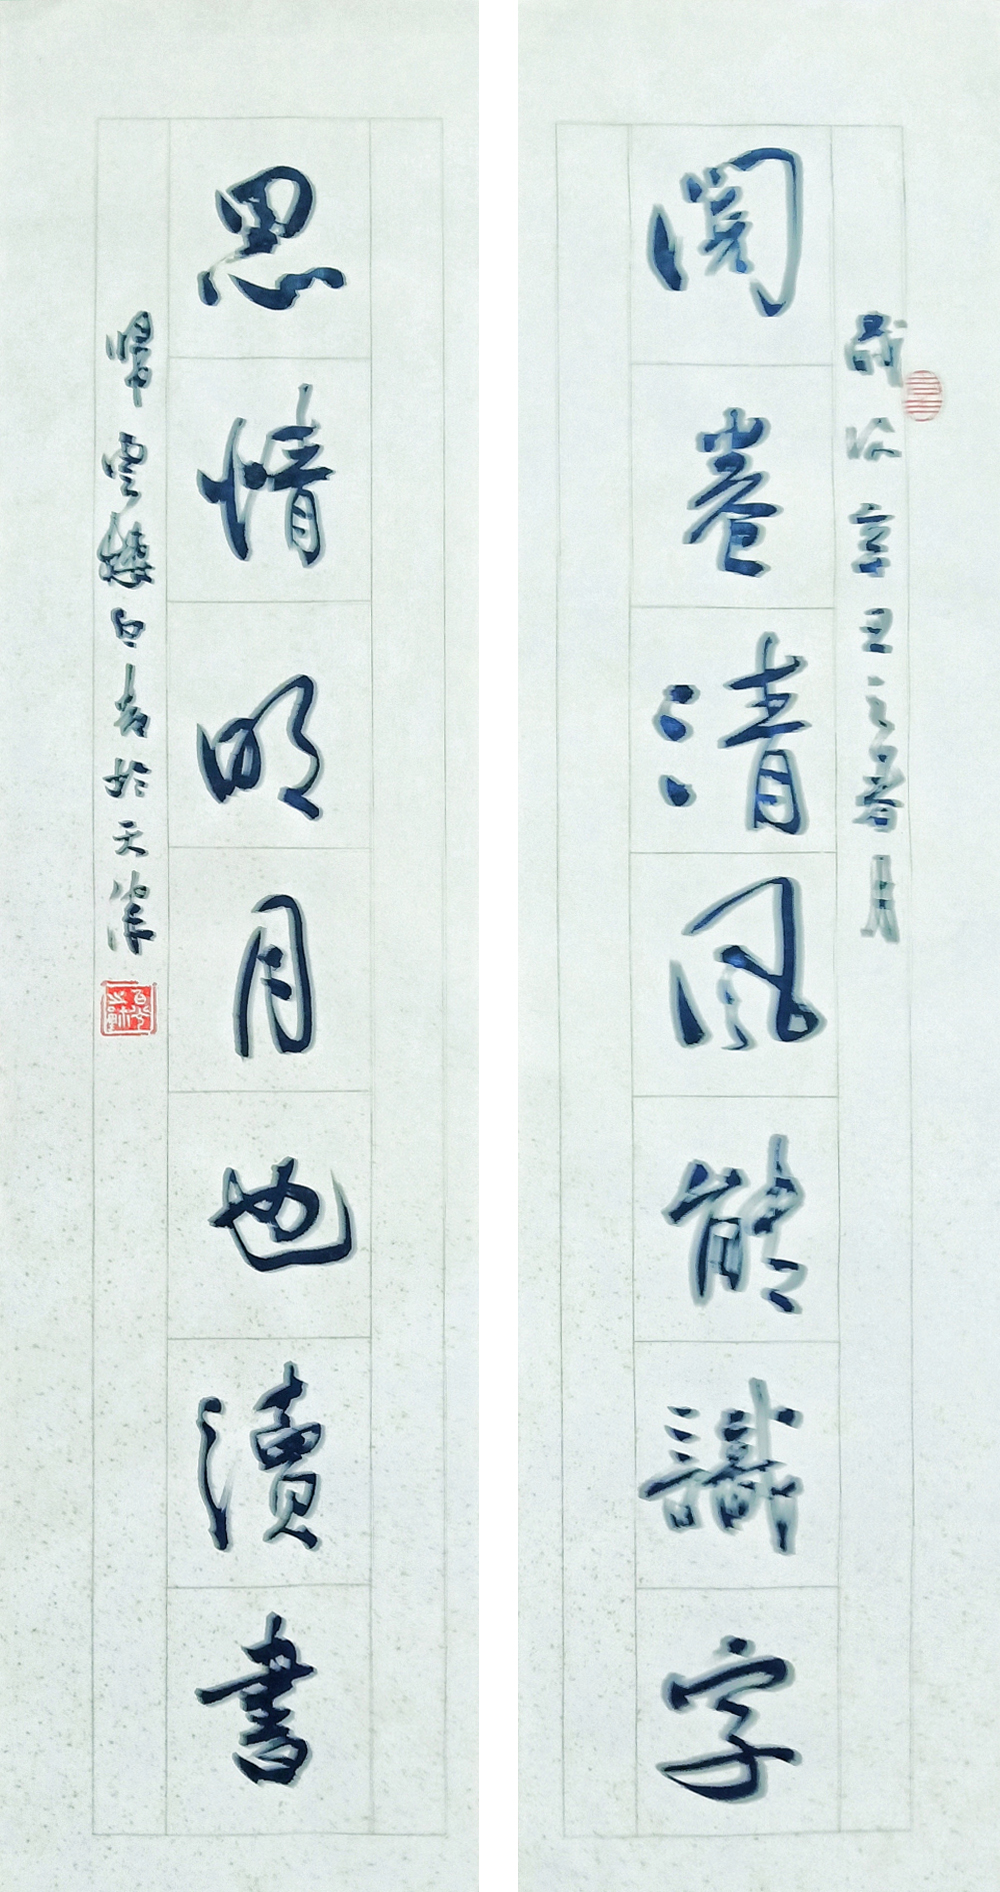 歲次辛丑之春月
閱卷清風能識字
思情明月也讀書
雲樓白於天津